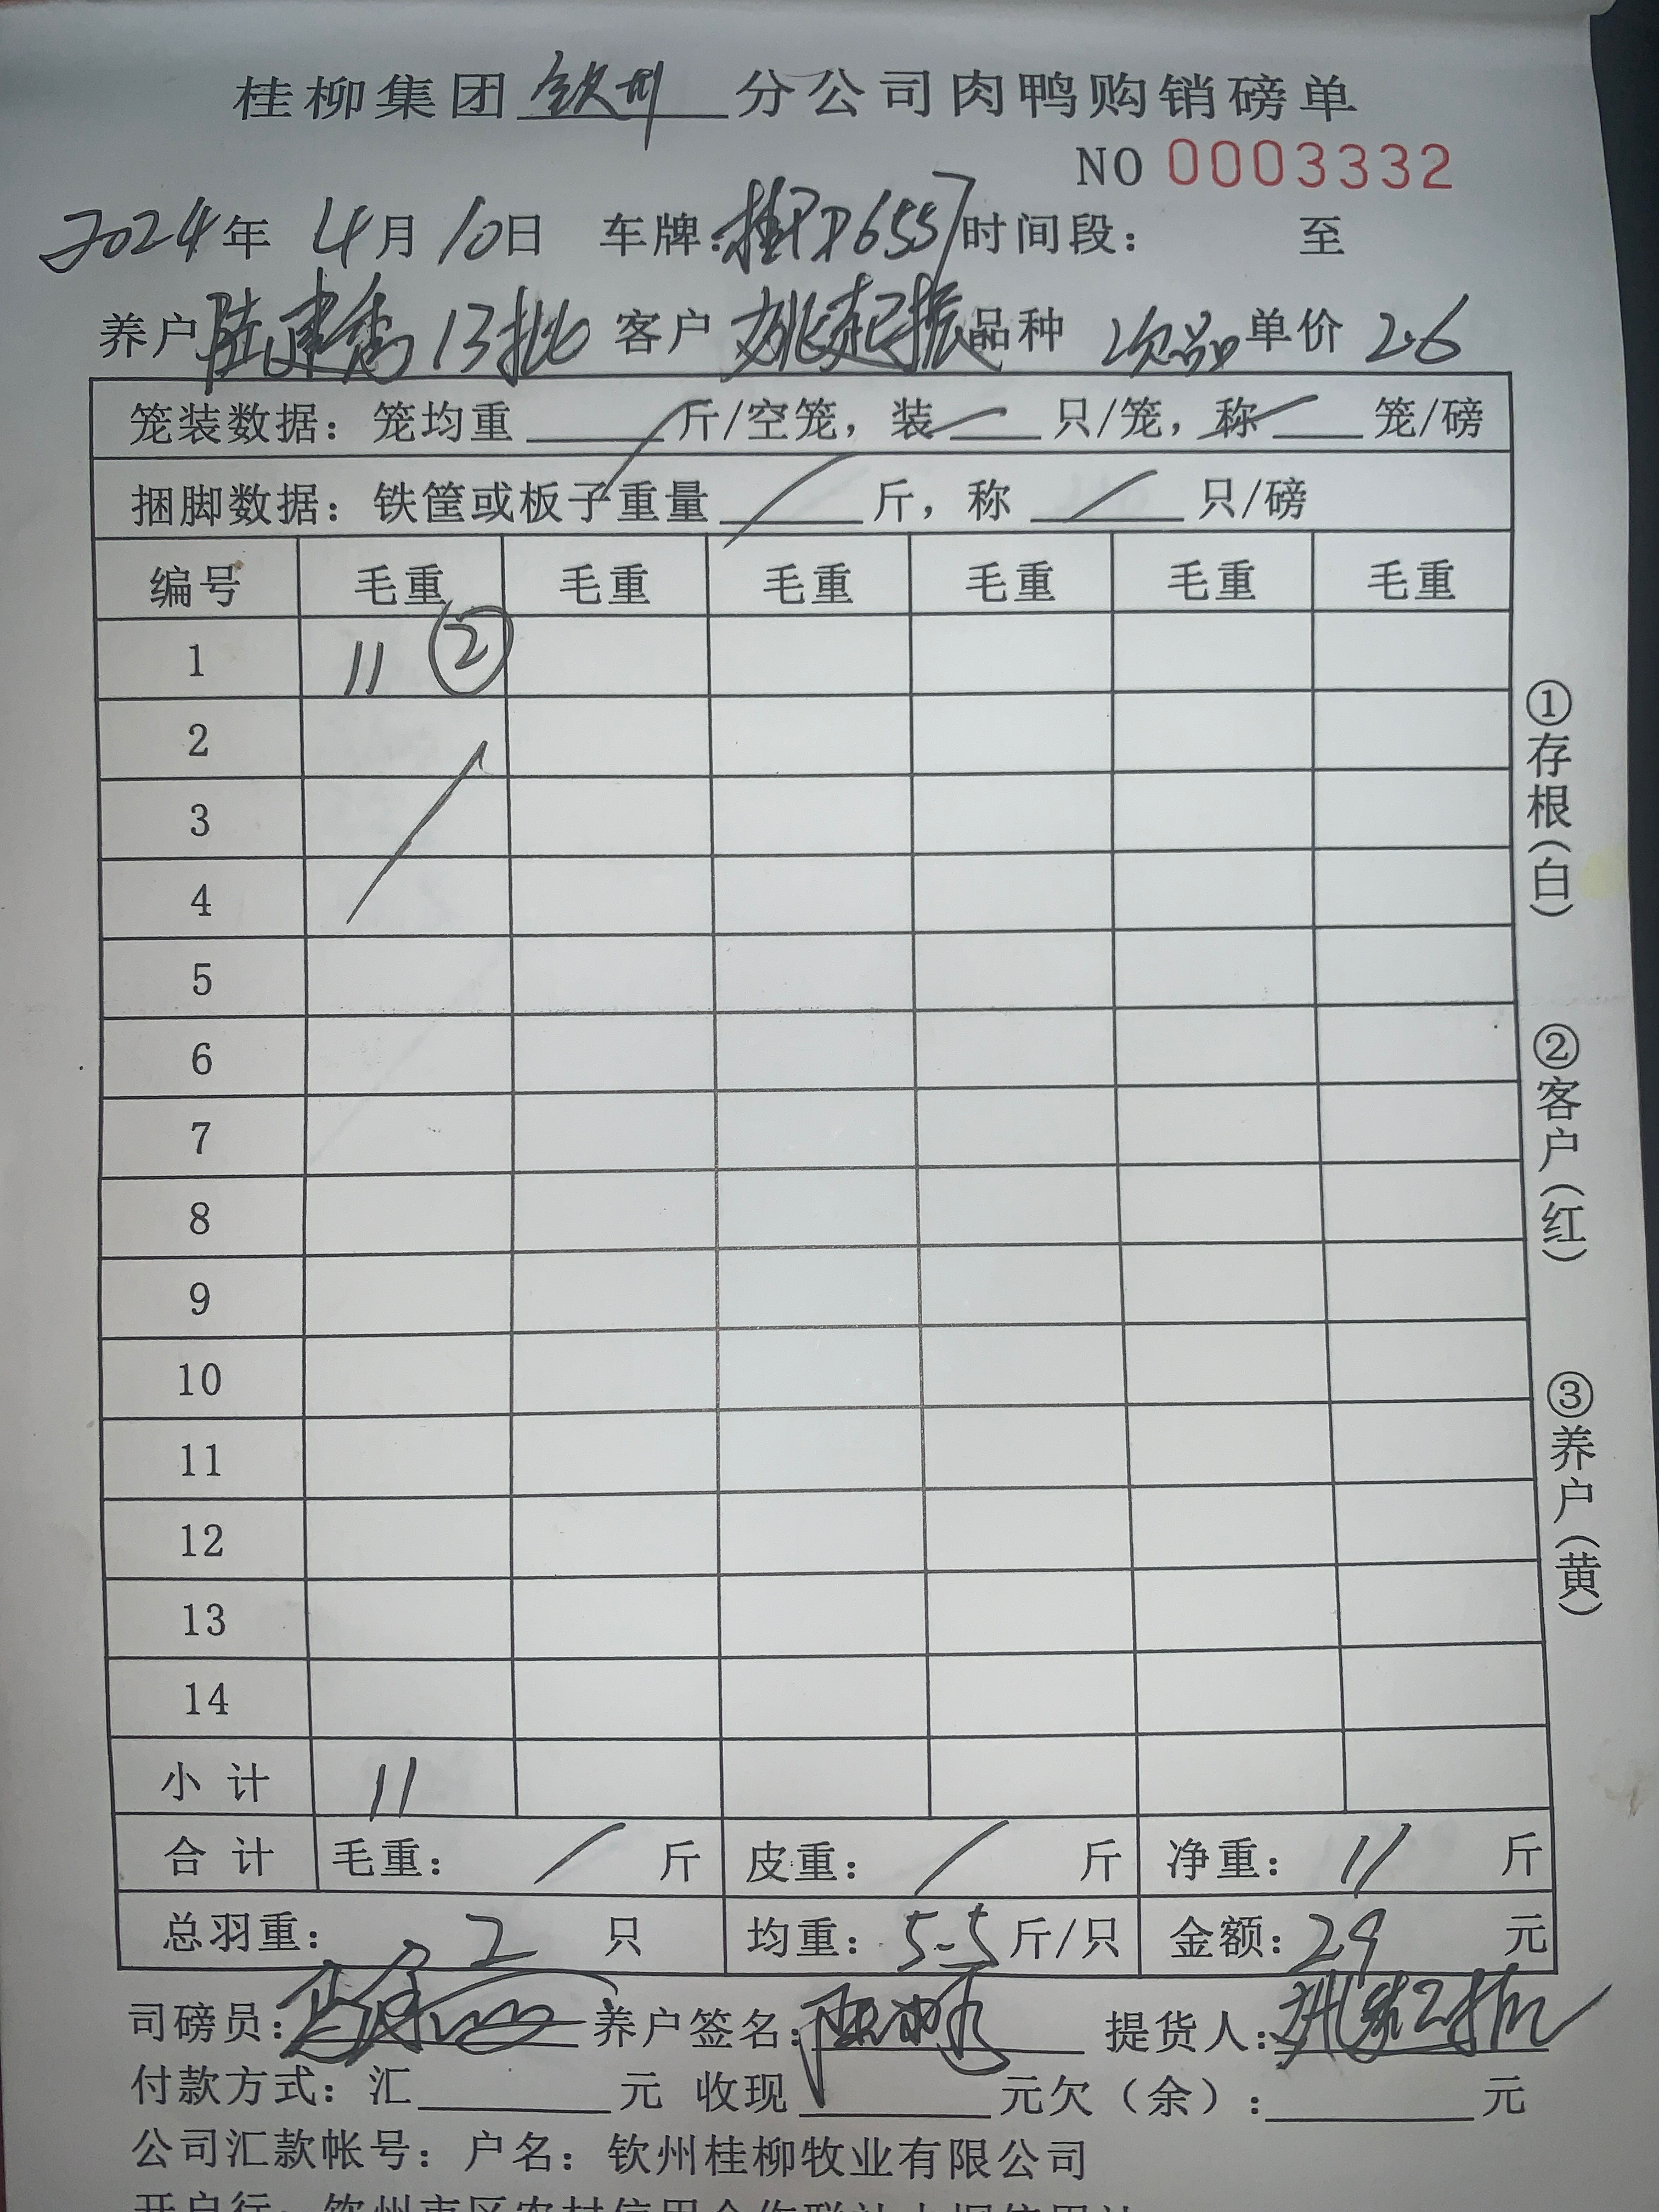 桂柳集团钦州分公司肉鸭购销磅单
NO 0003332
2024年 4月 10日 车牌:桂PD6557时间段: 至
养户陆建秀13批 客户姚起振品种 次品 单价 2.6
笼装数据: 笼均重 斤/空笼, 装 只/笼, 称 笼/磅
捆脚数据: 铁筐或板子重量 斤, 称 只/磅
编号 毛重 毛重 毛重 毛重 毛重 毛重
1 11 ②
2
3
4
5
6
7
8
9
10
11
12
13
14
小计 11
合计 毛重: / 斤 皮重: / 斤 净重: 11 斤
总羽重: 2 只 均重: 5-5斤/只 金额:29 元
司磅员: 养户签名: 提货人:姚起振
付款方式: 汇 元 收现 元欠(余): 元
公司汇款帐号: 户名: 钦州桂柳牧业有限公司
①存根(白)
②客户(红)
③养户(黄)